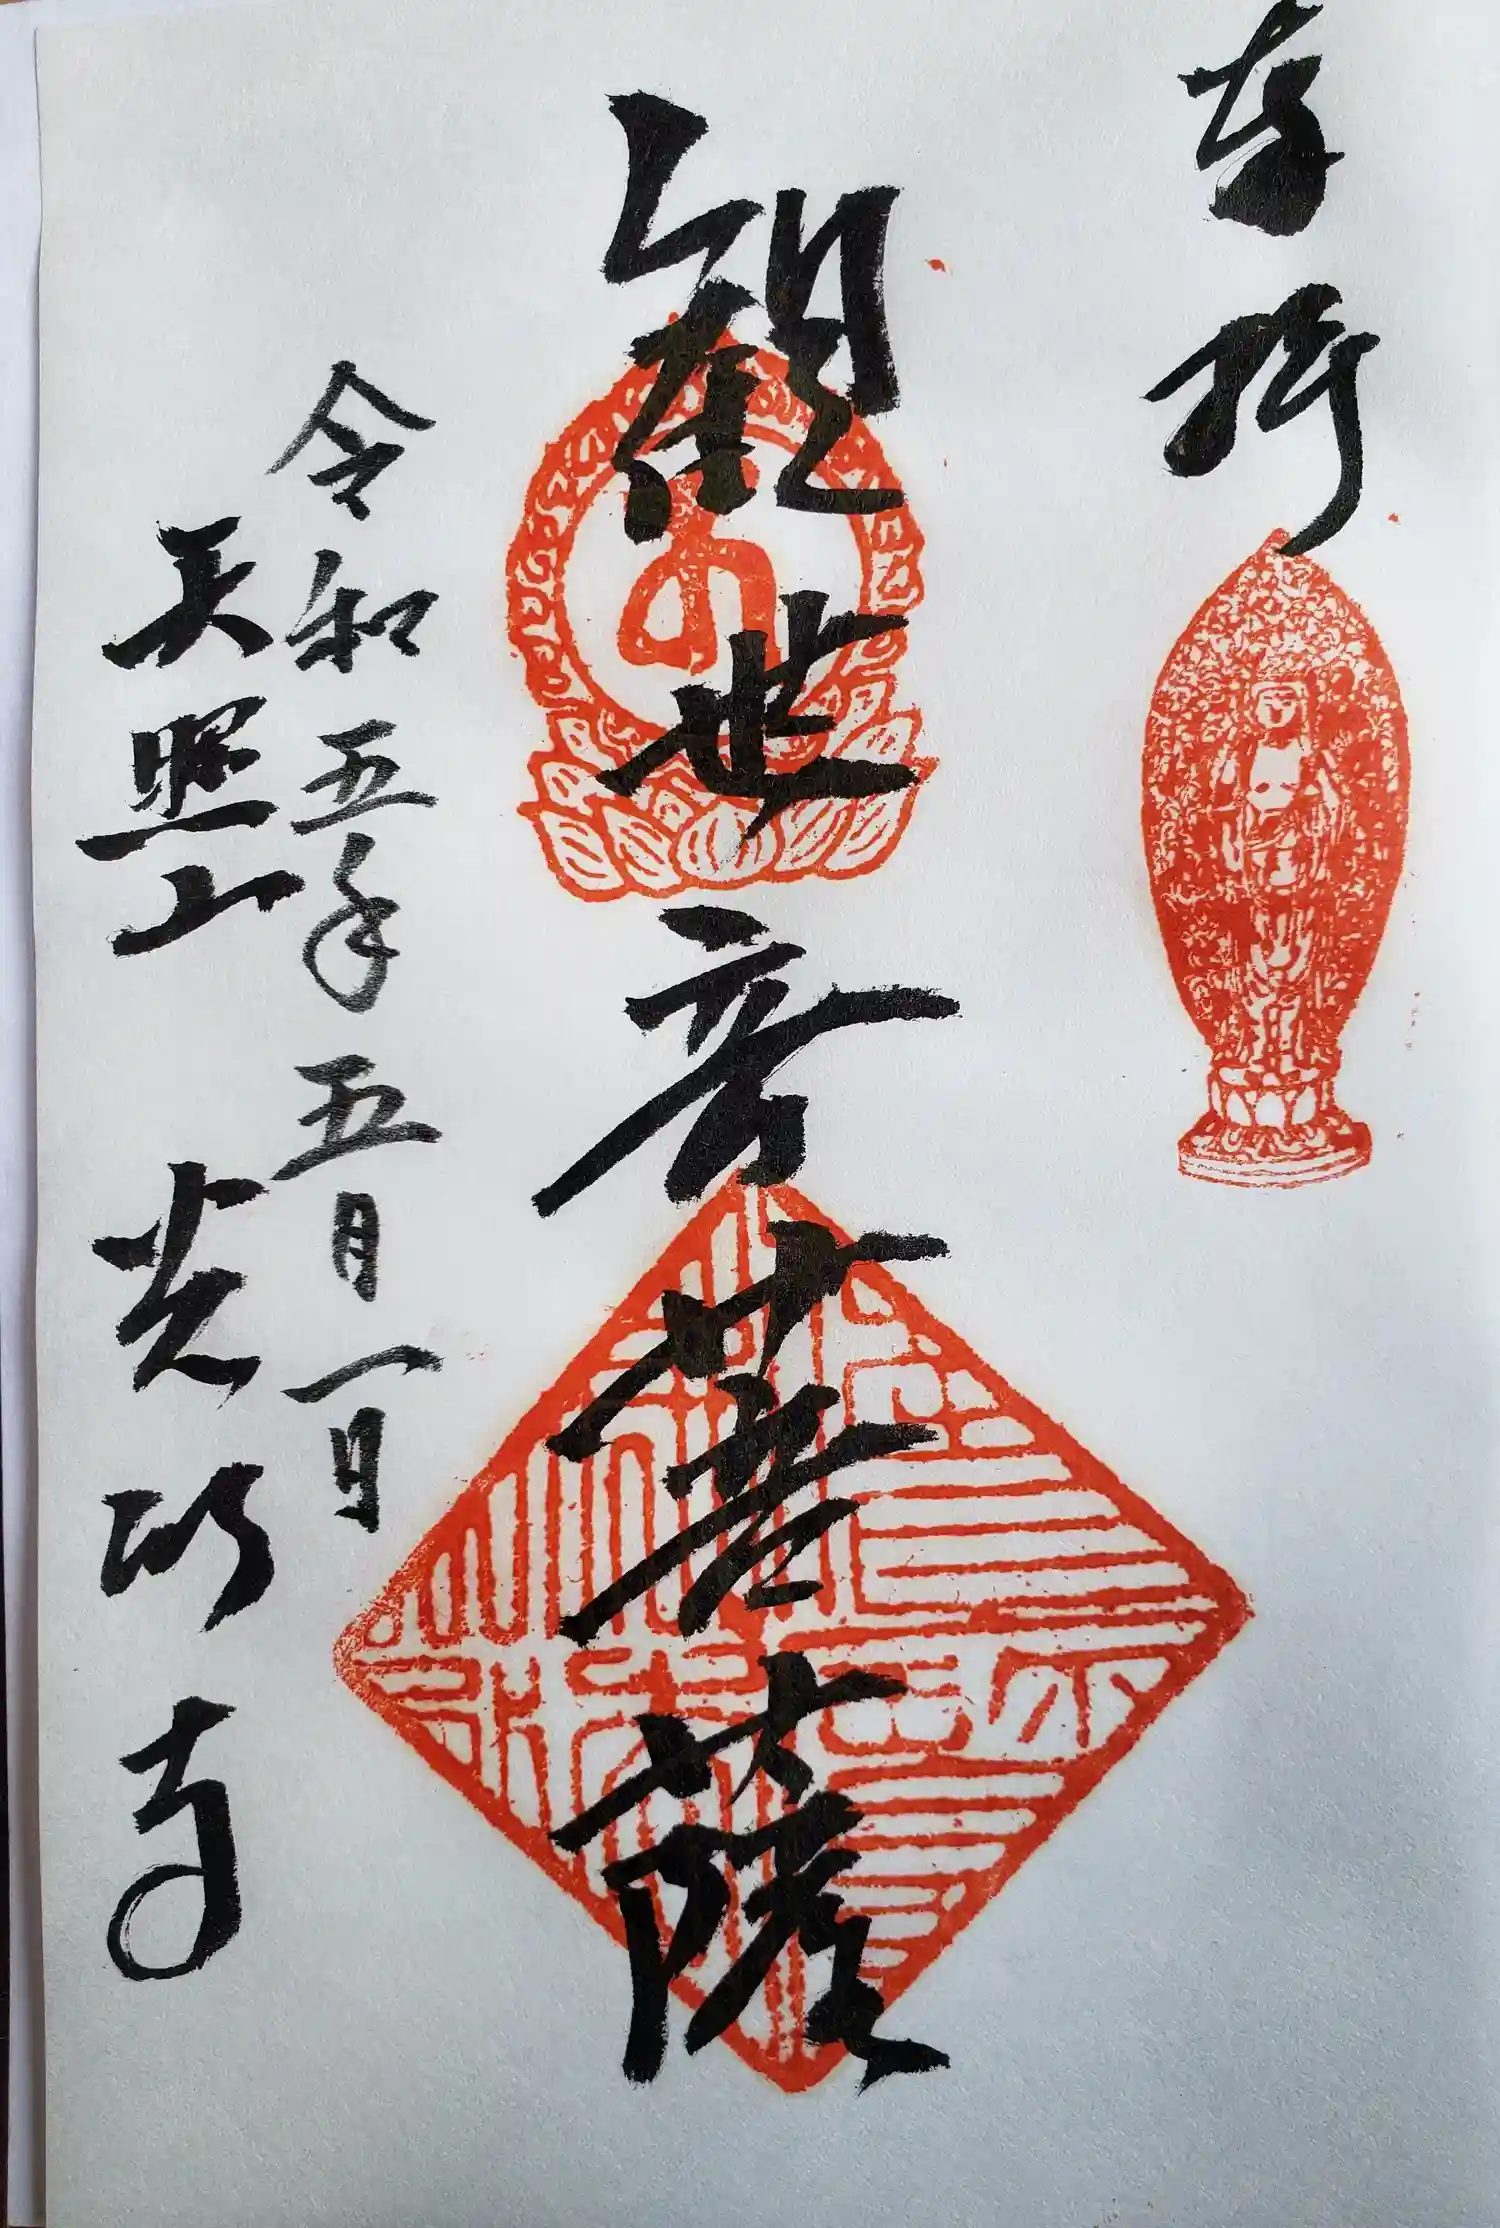 奉拝
観世音菩薩
令和五年五月一日
天照山 光明寺